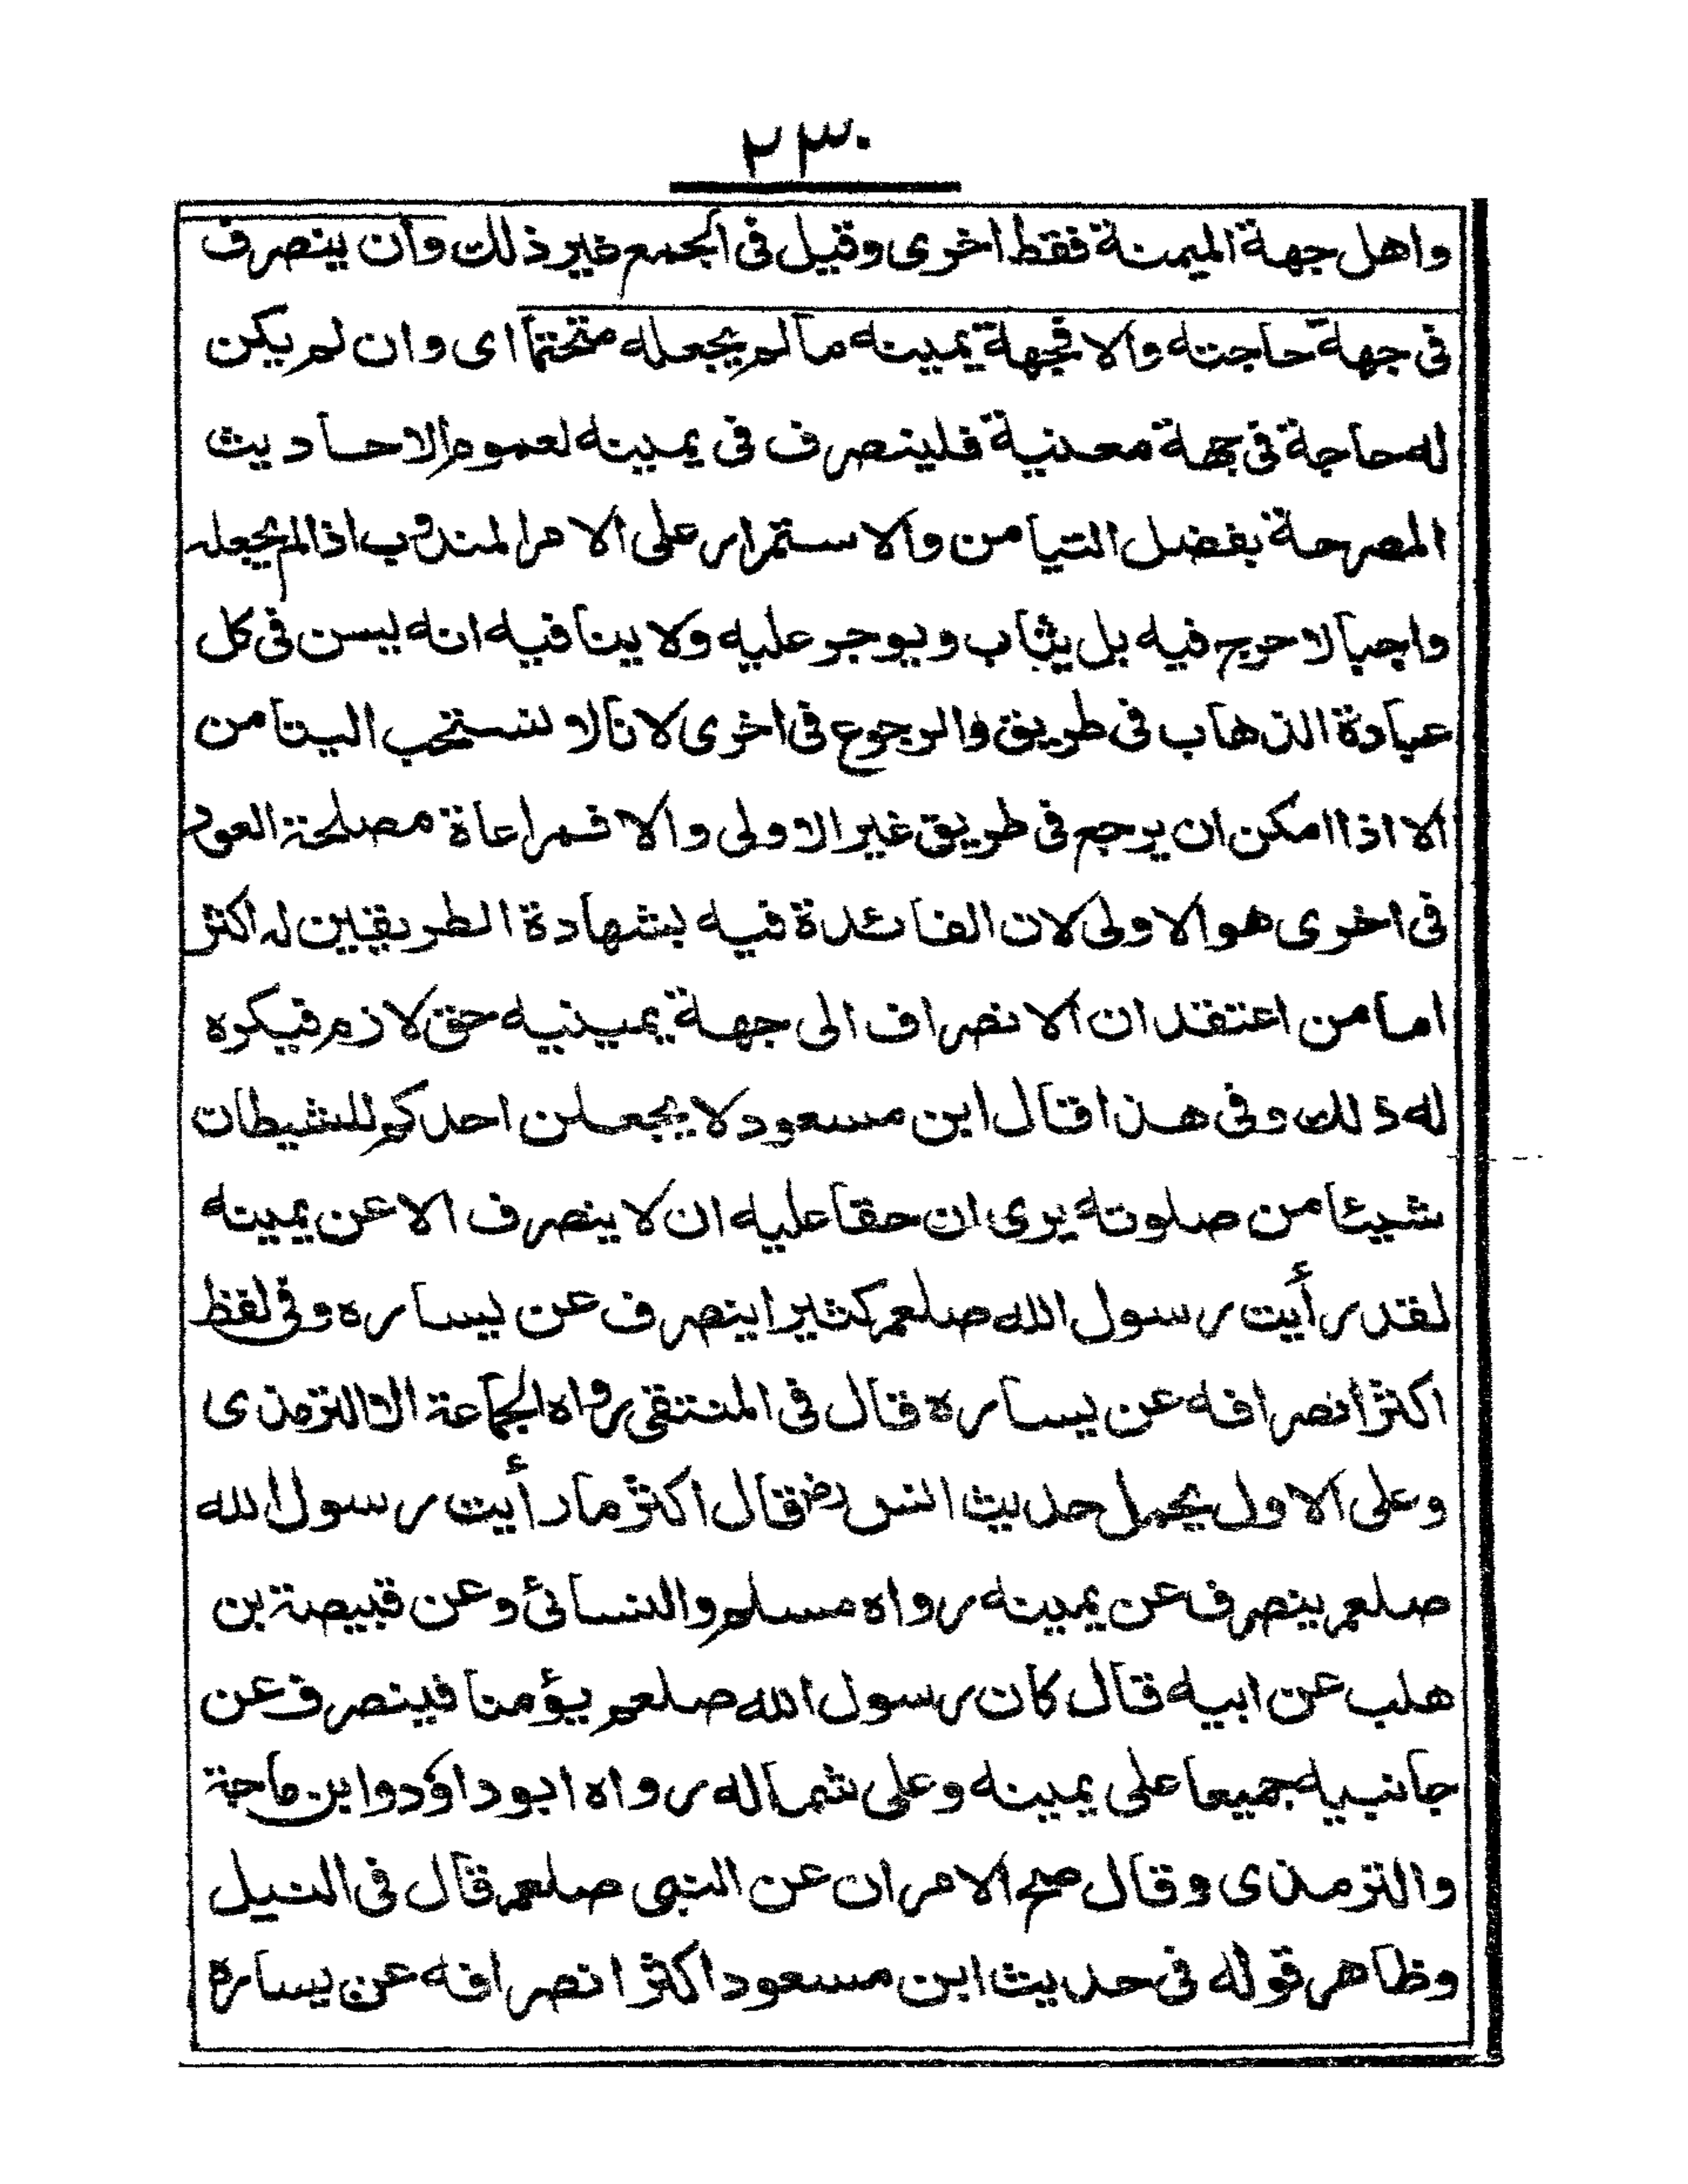 ٢٣٠
واهل جهة الميمنة فقط اخرى وقيل فى الجمع غير ذلك وان ينصرف
فى جهة حاجته والا فجهة يمينه ما لم يجعله متحتما اى وان لم يكن
له حاجة فى جهة معنية فلينصرف فى يمينه لعموم الاحاديث
المصرحة بفضل التيامن والاستمرار على الامر المندوب اذا لم يجعله
واجبا لا حرج فيه بل يثاب ويوجر عليه ولا ينافيه انه يسن فى كل
عبادة الذهاب فى طريق والرجوع فى اخرى لانا لا نستحب التيامن
الا اذا امكن ان يرجع فى طريق غير الاولى والا فمراعاة مصلحة العود
فى اخرى هو الاولى لان الفائدة فيه بشهادة الطريقين له اكثر
اما من اعتقد ان الانصراف الى جهة يمينيه حق لازم فيكره
له ذلك وفى هذا قال ابن مسعود لا يجعلن احدكم للشيطان
شيئا من صلوته يرى ان حقا عليه ان لا ينصرف الا عن يمينه
لقد رأيت رسول الله صلعم كثيرا ينصرف عن يساره وفى لفظ
اكثر انصرافه عن يساره قال فى المنتقى رواه الجماعة الا الترمذى
وعلى الاول يحمل حديث انس رض قال اكثر ما رأيت رسول الله
صلعم ينصرف عن يمينه رواه مسلم والنسائى وعن قبيصة بن
هلب عن ابيه قال كان رسول الله صلعم يؤمنا فينصرف عن
جانبيه جميعا على يمينه وعلى شماله رواه ابو داؤد وابن ماجة
والترمذى وقال صح الامران عن النبى صلعم قال فى النيل
وظاهر قوله فى حديث ابن مسعود اكثر انصرافه عن يساره